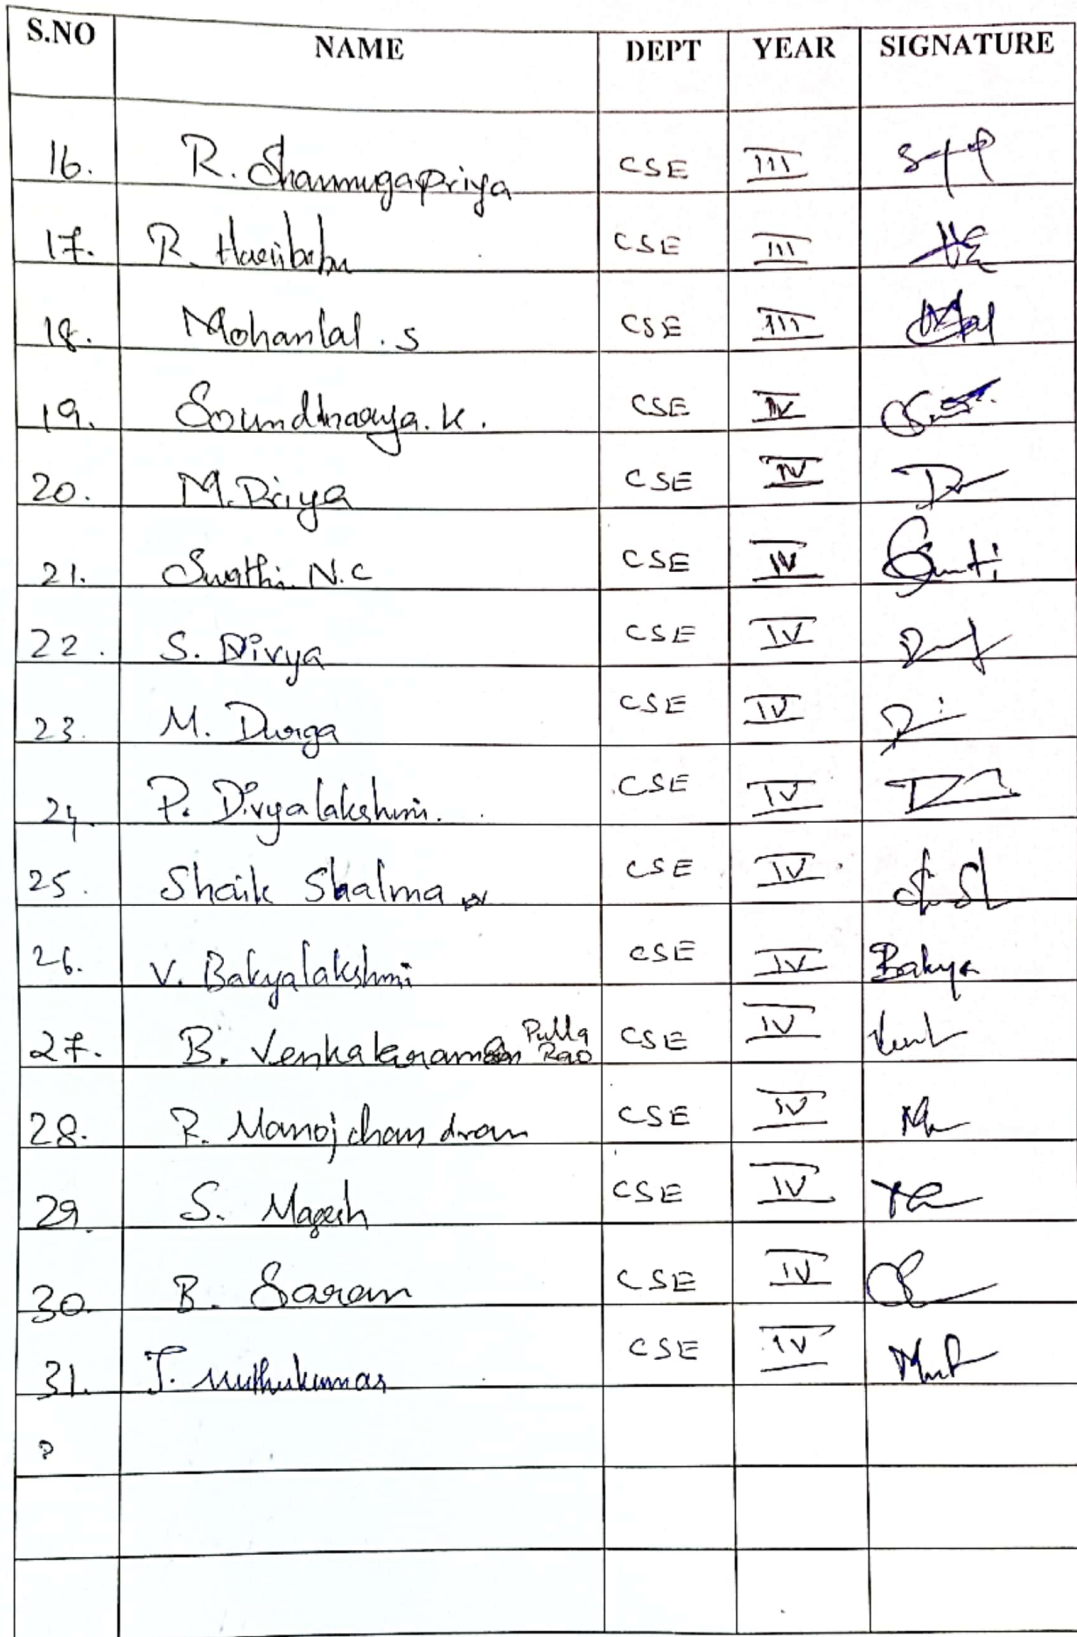 S.NO NAME DEPT YEAR SIGNATURE
16. R. Shanmugapriya CSE III
17. R. Haribabu CSE III
18. Mohanlal . S CSE III
19. Soundharya. K. CSE IV
20. M. Priya CSE IV
21. Swathi. N.C CSE IV
22. S. Divya CSE IV
23. M. Durga CSE IV
24. P. Divyalakshmi. CSE IV
25. Shaik Shalma CSE IV
26. V. Bakyalakshmi CSE IV Bakya
27. B. Venkataraman Pulla Rao CSE IV
28. R. Manojchandran CSE IV
29. S. Magesh CSE IV
30. B. Saran CSE IV
31. J. Muthukumar CSE IV
?